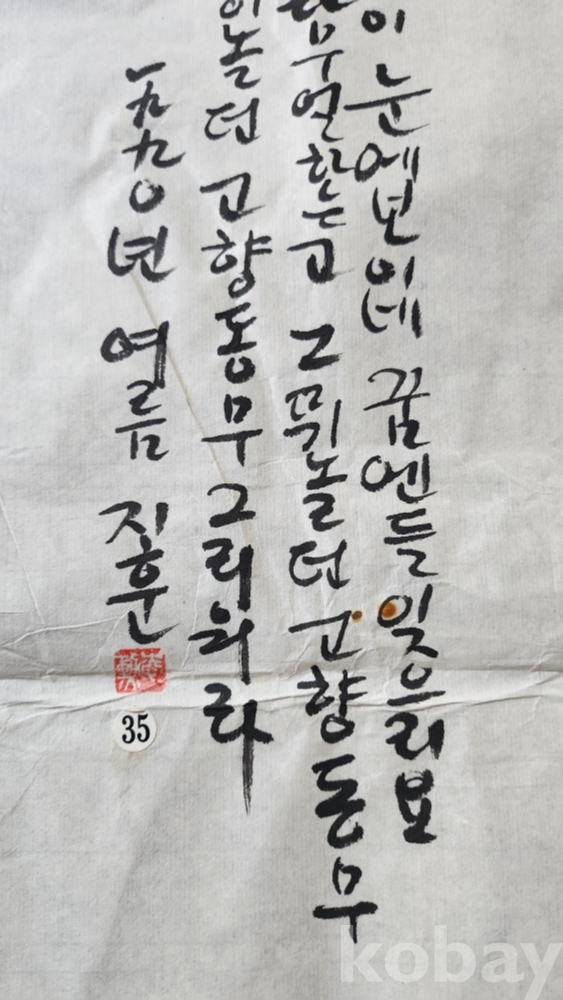 이 눈에 보이네 꿈엔들 잊으리요
무얼하는고 그 뛰놀던 고향동무
놀던 고향동무 그리워라
一九九○년 여름 지훈
35
kobay